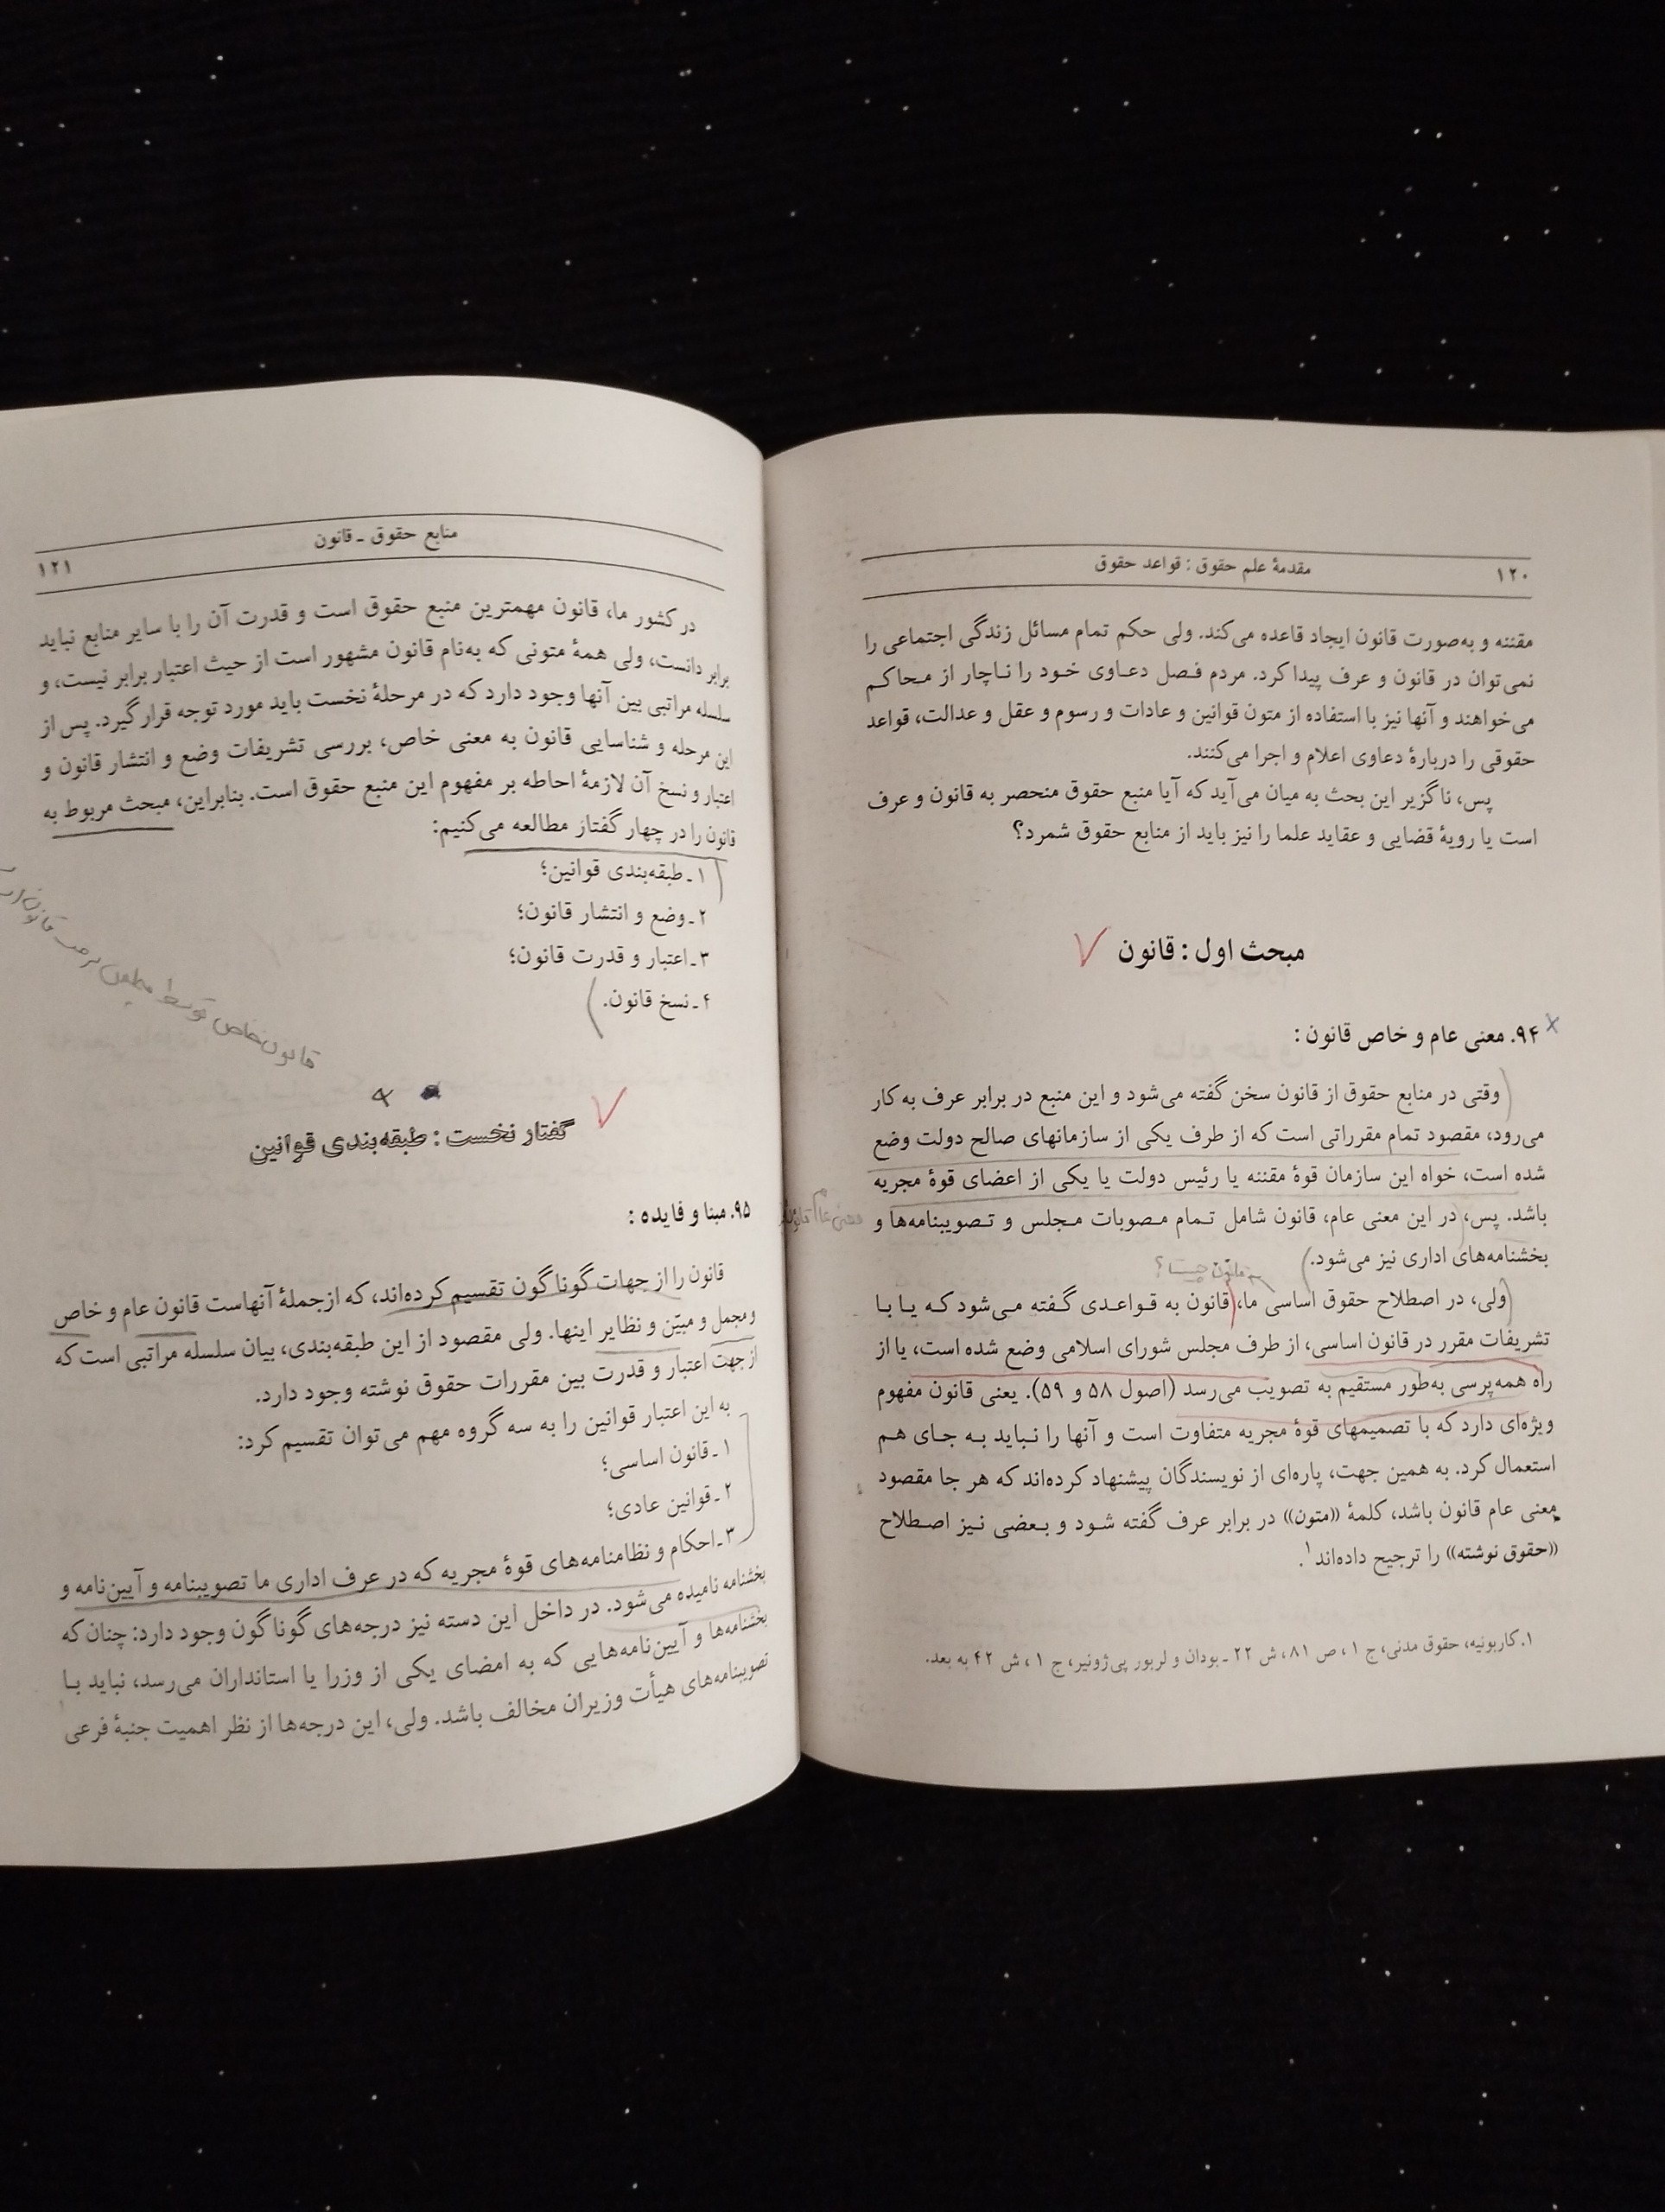 ۱۲۰
مقدمهٔ علم حقوق : قواعد حقوق
مقننه و به‌صورت قانون ایجاد قاعده می‌کند. ولی حکم تمام مسائل زندگی اجتماعی را
نمی‌توان در قانون و عرف پیدا کرد. مردم فصل دعاوی خود را ناچار از محاکم
می‌خواهند و آنها نیز با استفاده از متون قوانین و عادات و رسوم و عقل و عدالت، قواعد
حقوقی را دربارهٔ دعاوی اعلام و اجرا می‌کنند.
پس، ناگزیر این بحث به میان می‌آید که آیا منبع حقوق منحصر به قانون و عرف
است یا رویهٔ قضایی و عقاید علما را نیز باید از منابع حقوق شمرد؟
مبحث اول : قانون
۹۴. معنی عام و خاص قانون :
وقتی در منابع حقوق از قانون سخن گفته می‌شود و این منبع در برابر عرف به کار
می‌رود، مقصود تمام مقرراتی است که از طرف یکی از سازمانهای صالح دولت وضع
شده است، خواه این سازمان قوهٔ مقننه یا رئیس دولت یا یکی از اعضای قوهٔ مجریه
باشد. پس، در این معنی عام، قانون شامل تمام مصوبات مجلس و تصویبنامه‌ها و
بخشنامه‌های اداری نیز می‌شود.
قانون چیست؟
ولی، در اصطلاح حقوق اساسی ما، قانون به قواعدی گفته می‌شود که یا با
تشریفات مقرر در قانون اساسی، از طرف مجلس شورای اسلامی وضع شده است، یا از
راه همه‌پرسی به‌طور مستقیم به تصویب می‌رسد (اصول ۵۸ و ۵۹). یعنی قانون مفهوم
ویژه‌ای دارد که با تصمیمهای قوهٔ مجریه متفاوت است و آنها را نباید به جای هم
استعمال کرد. به همین جهت، پاره‌ای از نویسندگان پیشنهاد کرده‌اند که هر جا مقصود
معنی عام قانون باشد، کلمهٔ «متون» در برابر عرف گفته شود و بعضی نیز اصطلاح
«حقوق نوشته» را ترجیح داده‌اند۱.
۱. کاربونیه، حقوق مدنی، ج ۱، ص ۸۱، ش ۲۲ ـ بودان و لربور پی‌ژونیر، ج ۱، ش ۴۲ به بعد.
منابع حقوق ـ قانون
۱۲۱
در کشور ما، قانون مهمترین منبع حقوق است و قدرت آن را با سایر منابع نباید
برابر دانست، ولی همهٔ متونی که به‌نام قانون مشهور است از حیث اعتبار برابر نیست، و
سلسله مراتبی بین آنها وجود دارد که در مرحلهٔ نخست باید مورد توجه قرار گیرد. پس از
این مرحله و شناسایی قانون به معنی خاص، بررسی تشریفات وضع و انتشار قانون و
اعتبار و نسخ آن لازمهٔ احاطه بر مفهوم این منبع حقوق است. بنابراین، مبحث مربوط به
قانون را در چهار گفتار مطالعه می‌کنیم:
۱ـ طبقه‌بندی قوانین؛
۲ـ وضع و انتشار قانون؛
۳ـ اعتبار و قدرت قانون؛
۴ـ نسخ قانون.
قانون خاص توسط
گفتار نخست : طبقه‌بندی قوانین
۹۵. مبنا و فایده :
معنی عام قانون
قانون را از جهات گوناگون تقسیم کرده‌اند، که ازجملهٔ آنهاست قانون عام و خاص
و مجمل و مبیّن و نظایر اینها. ولی مقصود از این طبقه‌بندی، بیان سلسله مراتبی است که
از جهت اعتبار و قدرت بین مقررات حقوق نوشته وجود دارد.
به این اعتبار قوانین را به سه گروه مهم می‌توان تقسیم کرد:
۱ـ قانون اساسی؛
۲ـ قوانین عادی؛
۳ـ احکام و نظامنامه‌های قوهٔ مجریه که در عرف اداری ما تصویبنامه و آیین‌نامه و
بخشنامه نامیده می‌شود. در داخل این دسته نیز درجه‌های گوناگون وجود دارد: چنان که
بخشنامه‌ها و آیین‌نامه‌هایی که به امضای یکی از وزرا یا استانداران می‌رسد، نباید با
تصویبنامه‌های هیأت وزیران مخالف باشد. ولی، این درجه‌ها از نظر اهمیت جنبهٔ فرعی